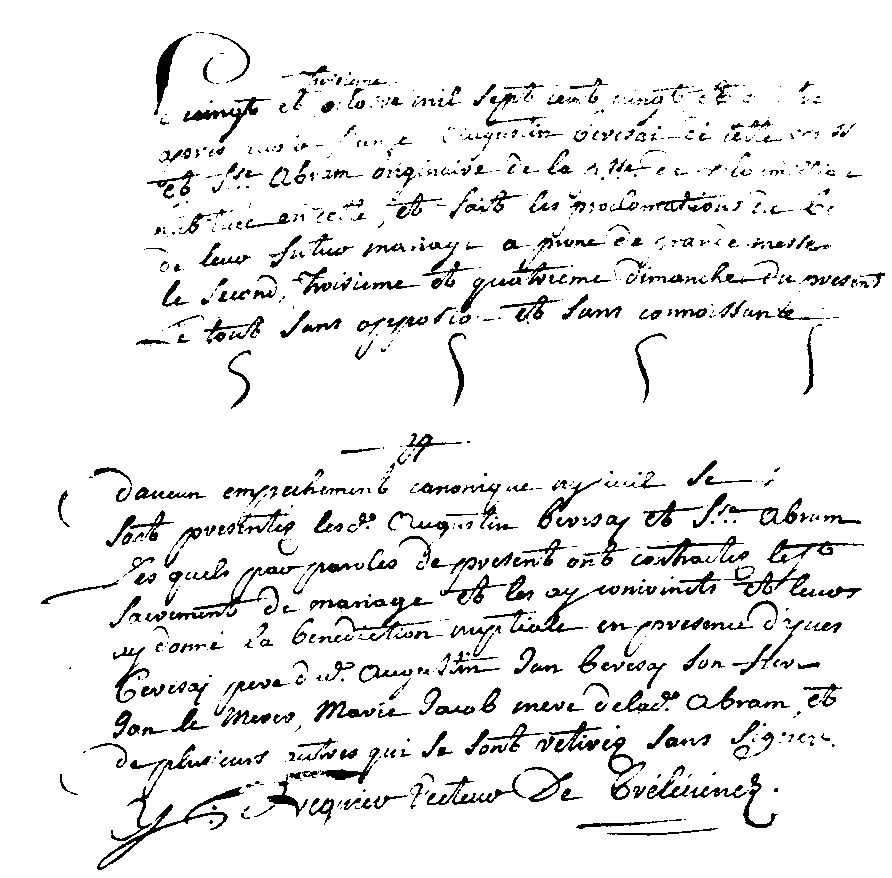 troisieme
vingt et octobre mil sept cent vingt et
après Augustin Bervesai de cette
et Sse. Abram originaire de la de
en cette, et fait les proclamations de
de leur futur mariage a prone de grande messe
le second, troisieme et quatrieme dimanche du present
Le tout sans opposio. et sans connoissante
daucun empechement canonique ay se
sont presentez lesd. Augustin Bervesaj et Sse. Abram
Les quels par paroles de present ont contractes le st
sacrement de mariage et les ay conioincts et leurs
ay donné la benediction nuptiale en presence d'yves
Bervesaj pere dud. Augustin Jan Bervesaj son frere
Jan le Mercer, Marie Jacob mere delad. Abram, et
de plusieurs autres qui se sont retirez sans signer.
Y Recteur De Trélévénez.